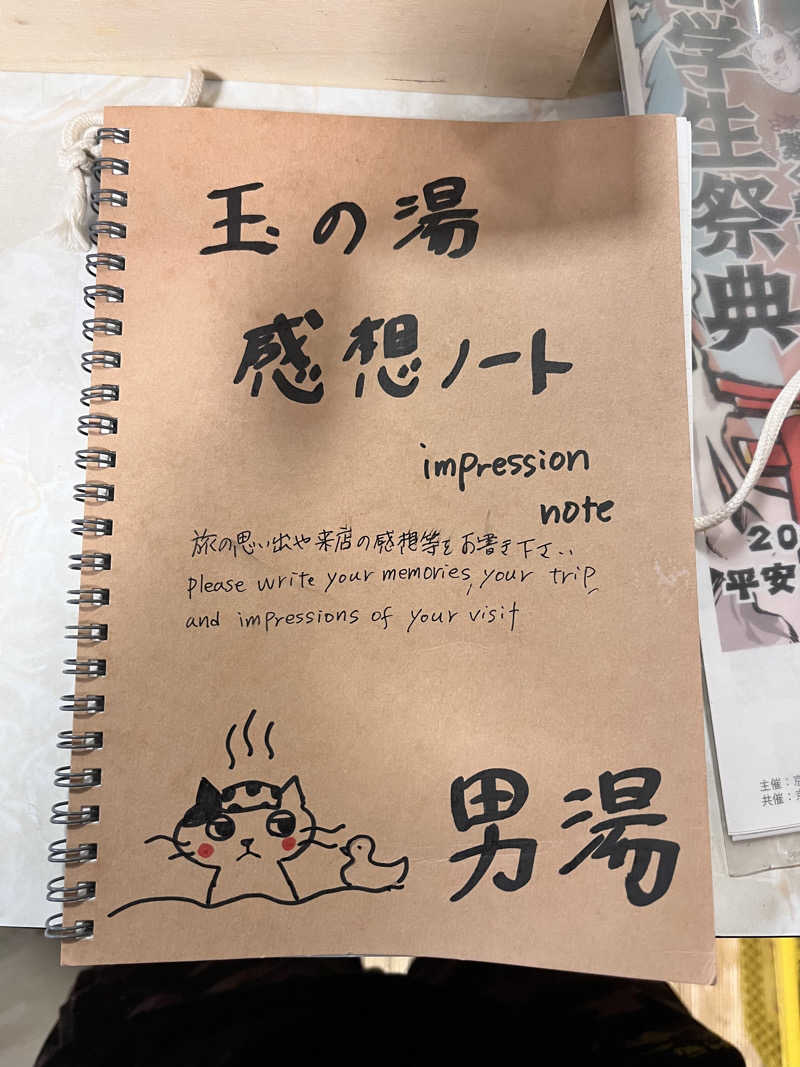 玉の湯
感想ノート
impression
note
旅の思い出や来店の感想等をお書き下さい
please write your memories, your trip,
and impressions of your visit
男湯
学生祭典
20
平安
主催：京
共催：